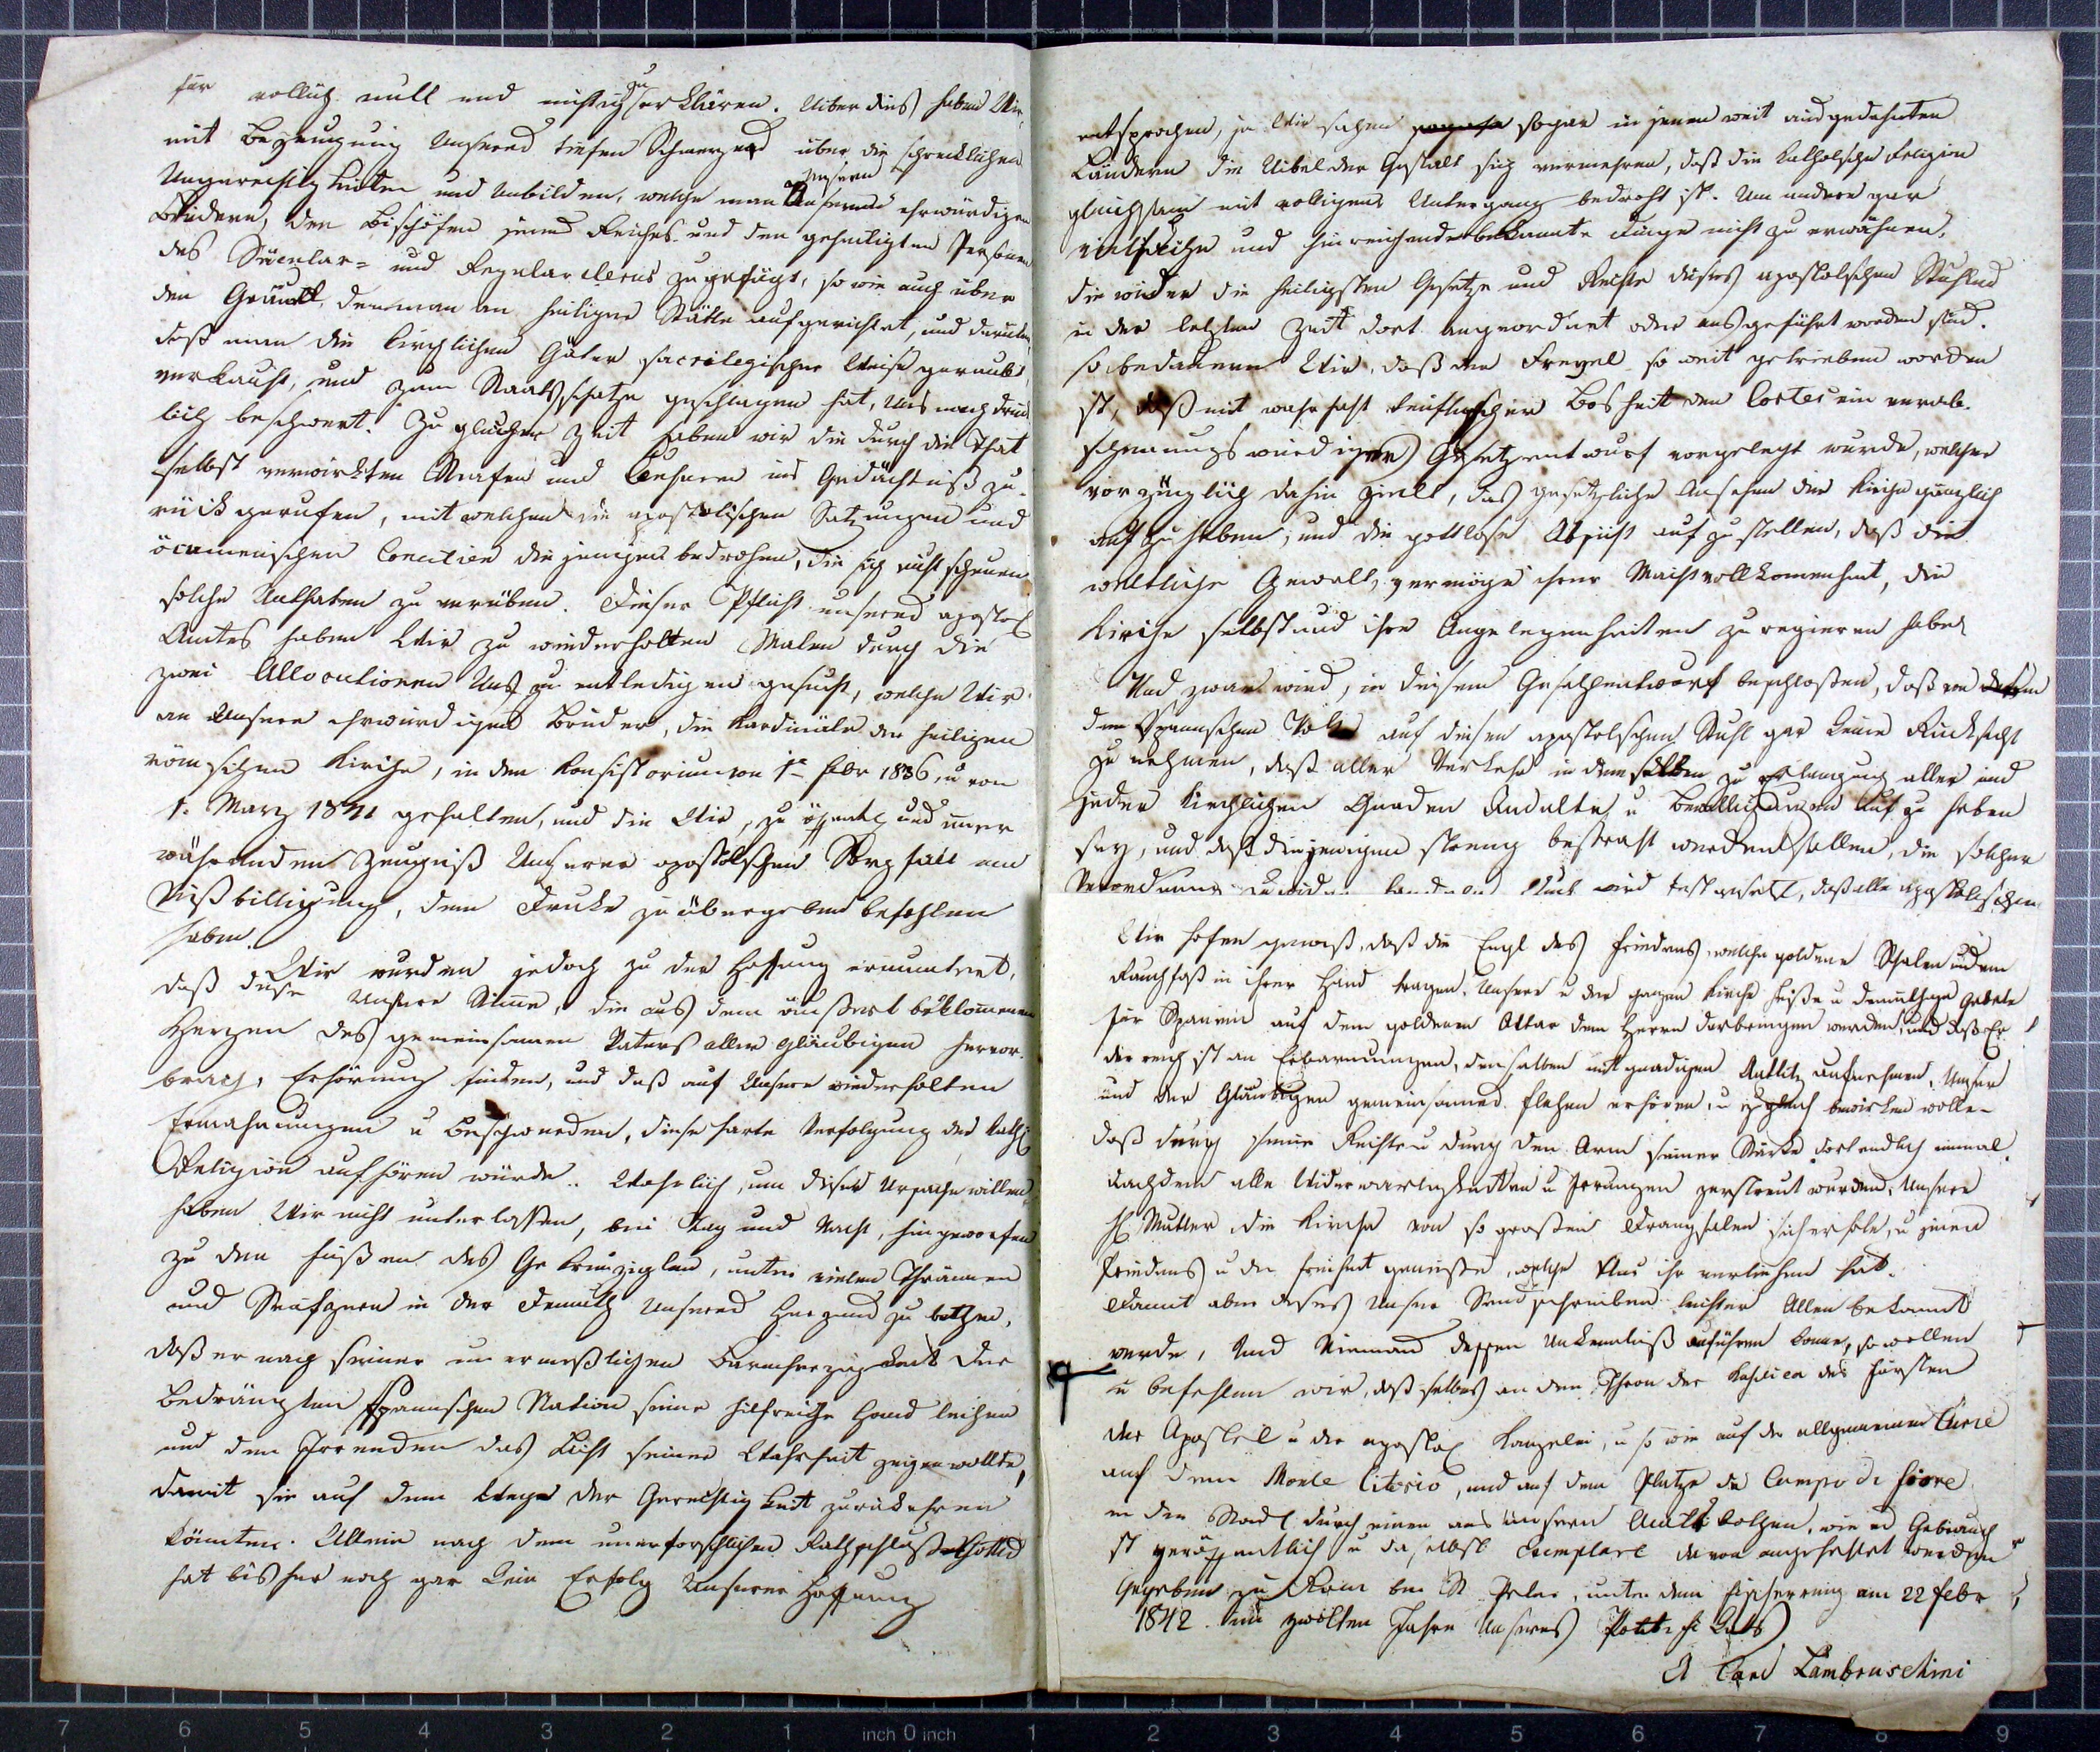 für völlig null und nichtig zu erklären. Uiber dies haben Wir,
mit Bezeugung Unseres tiefen Schmerzens über die schrecklichen
Ungerechtigkeiten und Unbilden, welche man Unseren ehrwürdigen
Brüdern, den Bischöfen jenes Reiches und den geheiligten Personen
des Säcular- und Regularclerus zugefügt, so wie auch über
den Gräuel, den man an heiliger Stätte aufgerichtet, und darüber,
daß man die kirchlichen Güter sacrilegischer Weise geraubt,
verkauft, und zum Staatsschatze geschlagen hat, Uns nachdrück
lich beschwert. Zu gleicher Zeit haben wir die durch die That
selbst verwirkten Strafen und Censuren ins Gedächtniß zu-
rückgerufen, mit welchen die apostolischen Satzungen und
öcumenischen Concilien diejenigen bedrohen, die sich nicht scheuen
solche Unthaten zu verüben. Dieser Pflicht unseres apostol.
Amtes haben Wir zu wiederholten Malen durch die
zwei Allocutionen Uns zu entledigen gesucht, welche Wir
an Unsere ehrwürdigen Brüder, die Kardinäle der heiligen
römischen Kirche, in den Konsistorium von 1. Febr 1836, u von
1. März 1841 gehalten, und die Wir, zu öffentl. und immer
währenden Zeugniß Unserer apostolschen Sorgfalt und
Mißbilligung, dem Drucke zu übergeben befohlen
haben.
Wir wurden jedoch zu der Hoffnung ermuntert,
daß diese Unsere Stimme, die aus dem äußerst beklommenen
Herzen des gemeinsamen Vaters aller Gläubigen hervor-
brach, Erhörung finden, und daß auf Unsere wiederholten
Ermahnungen u Beschwerden, diese harte Verfolgung der kath.
Religion aufhören würde. Wahrlich, um dieser Ursache willen
haben Wir nicht unterlassen, bei Tag und Nacht, hingeworfen
zu den Füßen des Gekreuzigten, unter vielen Thränen
und Seufzern in der Demuth Unseres Herzens zu bethen,
daß er nach seiner unermeßlichen Barmherzigkeit der
bedrängten spanischen Nation seine hilfreiche Hand leihen
und den Irrenden das Licht seiner Wahrheit zeigen wollte,
damit sie auf dem Wege der Gerechtigkeit zurückkehren
könnten. Allein nach dem unerforschlichen Rathschluß Gottes
hat bisher noch gar kein Erfolg Unserer Hoffnung
entsprochen, ja Wir sehen sogar in jenen weit ausgedehnten
Ländern die Uibel der Gestalt sich vermehren, daß die katholsche Religion
gleichsam mit völligem Untergang bedroht ist. Um andere gar
vielfache und hinreichend bekannte Dinge nicht zu erwähnen,
die wider die heiligsten Gesetze und Rechte dieses apostolschen Stuhles
in der letzten Zeit dort angeordnet oder ausgeführt worden sind.
so bedauern Wir, daß der Frevel so weit getrieben worden
ist, daß mit wahrhaft teuflischer Bosheit den Cortes ein verab-
scheuungswürdiger Gesetzentwurf vorgelegt wurde, welcher
vorzüglich dahin zielt, das gesetzliche Ansehen der Kirche gänzlich
aufzuheben, und die gottlose Absicht aufzustellen, daß die
weltliche Gewalt, vermöge ihrer Machtvollkommenheit, die
Kirche selbst und ihre Angelegenheiten zu regieren habe.
Und zwar wird, in diesem Gesetzentwurf beschlossen, daß von
dem Spanischen Volke auf diesen apostolschen Stuhl gar keine Rücksicht
zu nehmen, daß aller Verkehr in demselben zu Erlangung aller und
jeder kirchlichen Gnaden Indulte u Bewilligungen aufzuheben
sey, und daß diejenigen streng bestraft werden sollen, die solcher
Verordnung zuwider handeln. Auch wird festgesetzt, daß alle apostolischen
Wir hofen gewiß, daß die Engl des Friedens, welche goldene Schalen u dem
Rauchfaß in ihrer Hand tragen. Unsere u der ganzen Kirche heiße u demüthige Gebete
für Spanien auf dem goldenen Altar dem Herrn darbringen werden, und daß Er
der reich ist an Erbarmungen, denselben mit gnädigen Antlitz aufnehmen, Unser
und der Gläubigen gemeinsames Flehen erhören, u bewirken wolle-
daß durch seine Rechte u durch den Arm seiner Stärke dort endlich einmal.
nachdem alle Widerwärtigkeiten u Irrungen zerstreut wurden, Unsere
hl Mutter die Kirche von so großen Drangsalen sich erhole, u jenen
Friedens u der Freiheit genieße, welche ihr verliehen hat.
Damit aber dieses Unser Sendschreiben leichter Allen bekannt
werde, und Niemand dessen Unkenntniß anführen könne, so wollen
u befehlen wir, daß selbes an den Thoren der Basilica des Fürsten
der Apostel u der apostol. Kanzelei, u so wie auf der allgemeinen Curie
auf dem Monte Citorio, und auf dem Platze de Campo di fiore
in der Stadt durch einen aus unseren Amtsbothen, wie es Gebrauch
ist veröffentlich u daselbst Exemplare davon angeheftet werden
Gegeben zu Rom bei St. Peter, unter dem Fischerring am 22 Febr
1842. im zwölten Jahre Unseres Pontificats
A Card Lambruschini
7 6 5 4 3 2 1 inch 0 inch 1 2 3 4 5 6 7 8 9